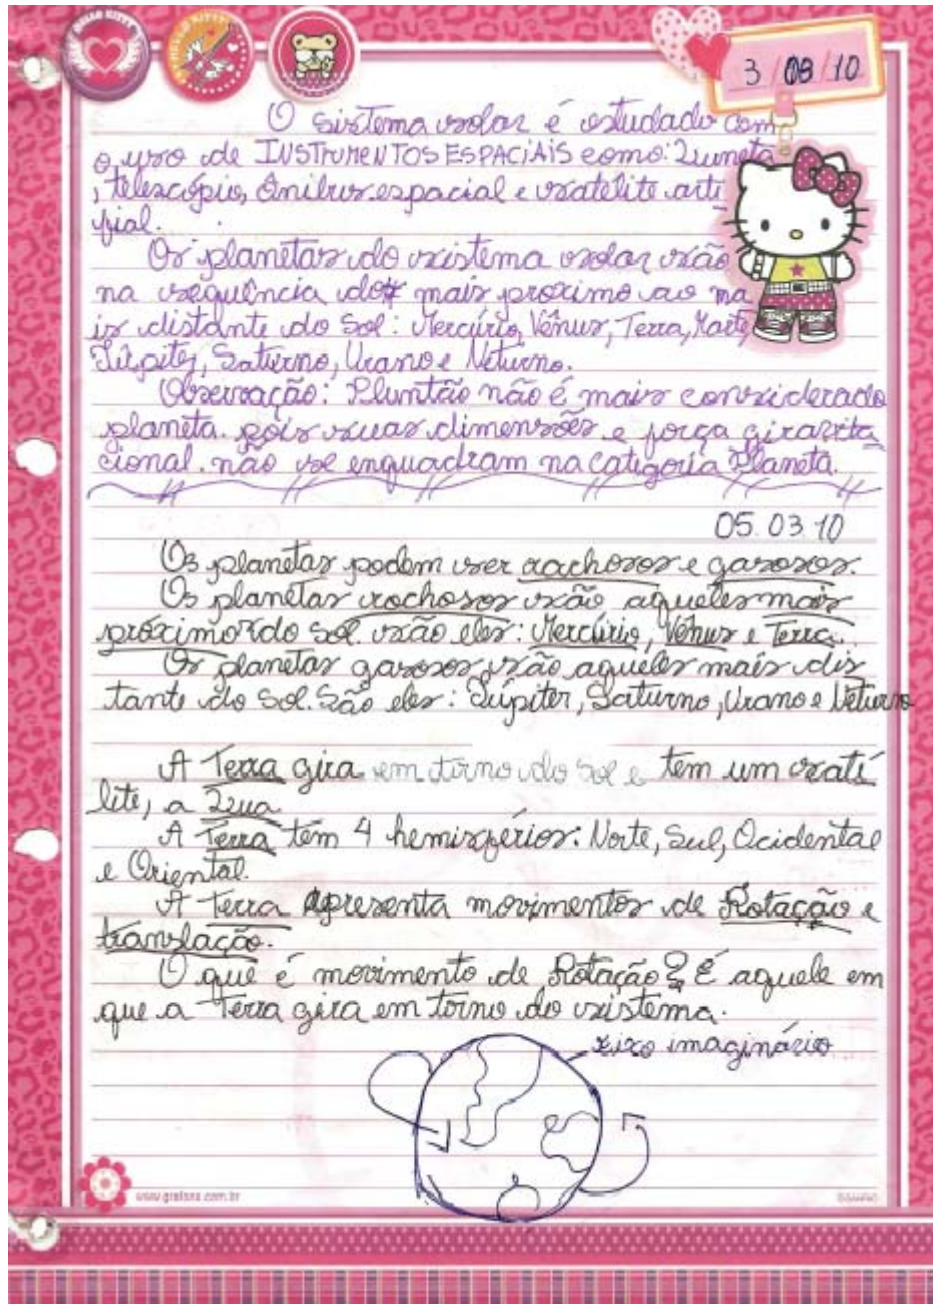 3/08/10
O sistema solar é estudado com
o uso de INSTRUMENTOS ESPACIAIS como: Luneta
, telescópio, ônibus espacial e satélite arti
fial.
Os planetas do sistema solar são
na sequência dos mais proximo ao ma
is distante do Sol: Mercúrio, Vênus, Terra, Marte,
Júpiter, Saturno, Urano e Neturno.
Observação: Pluntão não é mais considerado
planeta. pois suas dimensões e força giravita
cional. não se enquadram na categoria Planeta.
05.03.10
Os planetas podem ser rachosos e gasosos.
Os planetas rochosos são aqueles mais
próximos do sol. são eles: Mercúrio, Vênus e Terra.
Os planetas gasosos são aqueles mais dis
tante do Sol. São eles: Júpiter, Saturno, Urano e Neturno
A Terra gira em torno do Sol e tem um saté
lite, a Lua
A Terra tem 4 hemispérios: Norte, Sul, Ocidental
e Oriental.
A Terra apresenta movimentos de Rotação e
translação.
O que é movimento de Rotação? É aquele em
que a Terra gira em torno do sistema.
eixo imaginário
www.grafons.com.br